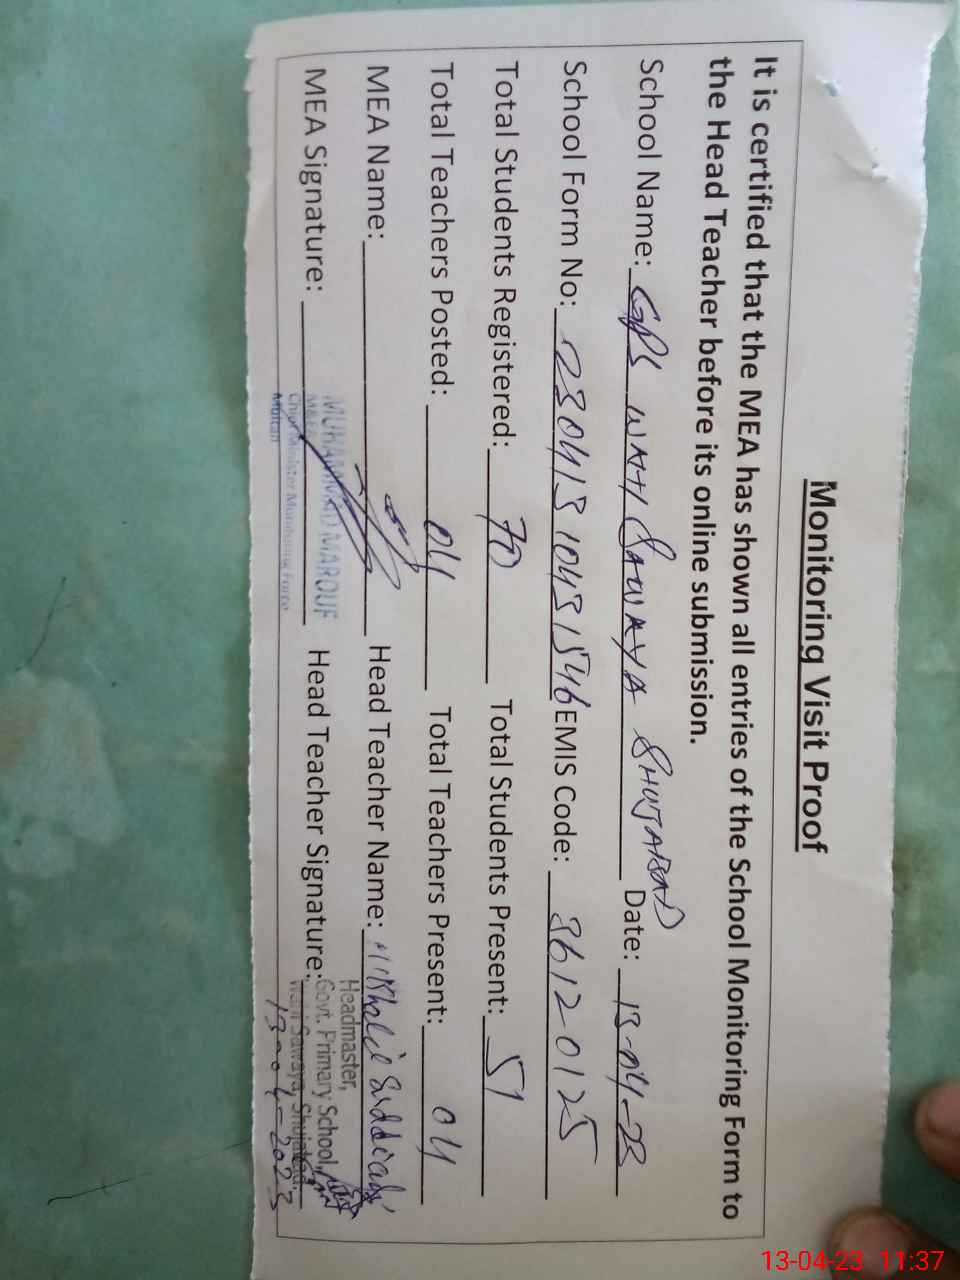 Monitoring Visit Proof
It is certified that the MEA has shown all entries of the School Monitoring Form to
the Head Teacher before its online submission.
School Name: GPS WAHI SAWAYA SHUJABAD Date: 13-04-23
School Form No: 23041310431546 EMIS Code: 36120125
Total Students Registered: 70 Total Students Present: 51
Total Teachers Posted: 04 Total Teachers Present: 04
MEA Name: Head Teacher Name: M Khalid
MUHAMMAD MAROUF
Chief Minister Monitoring Force
Multan
MEA Signature: Head Teacher Signature:
Headmaster,
Govt. Primary School,
Wahi Sawaya, Shujabad.
13-04-2023
13-04-23 11:37